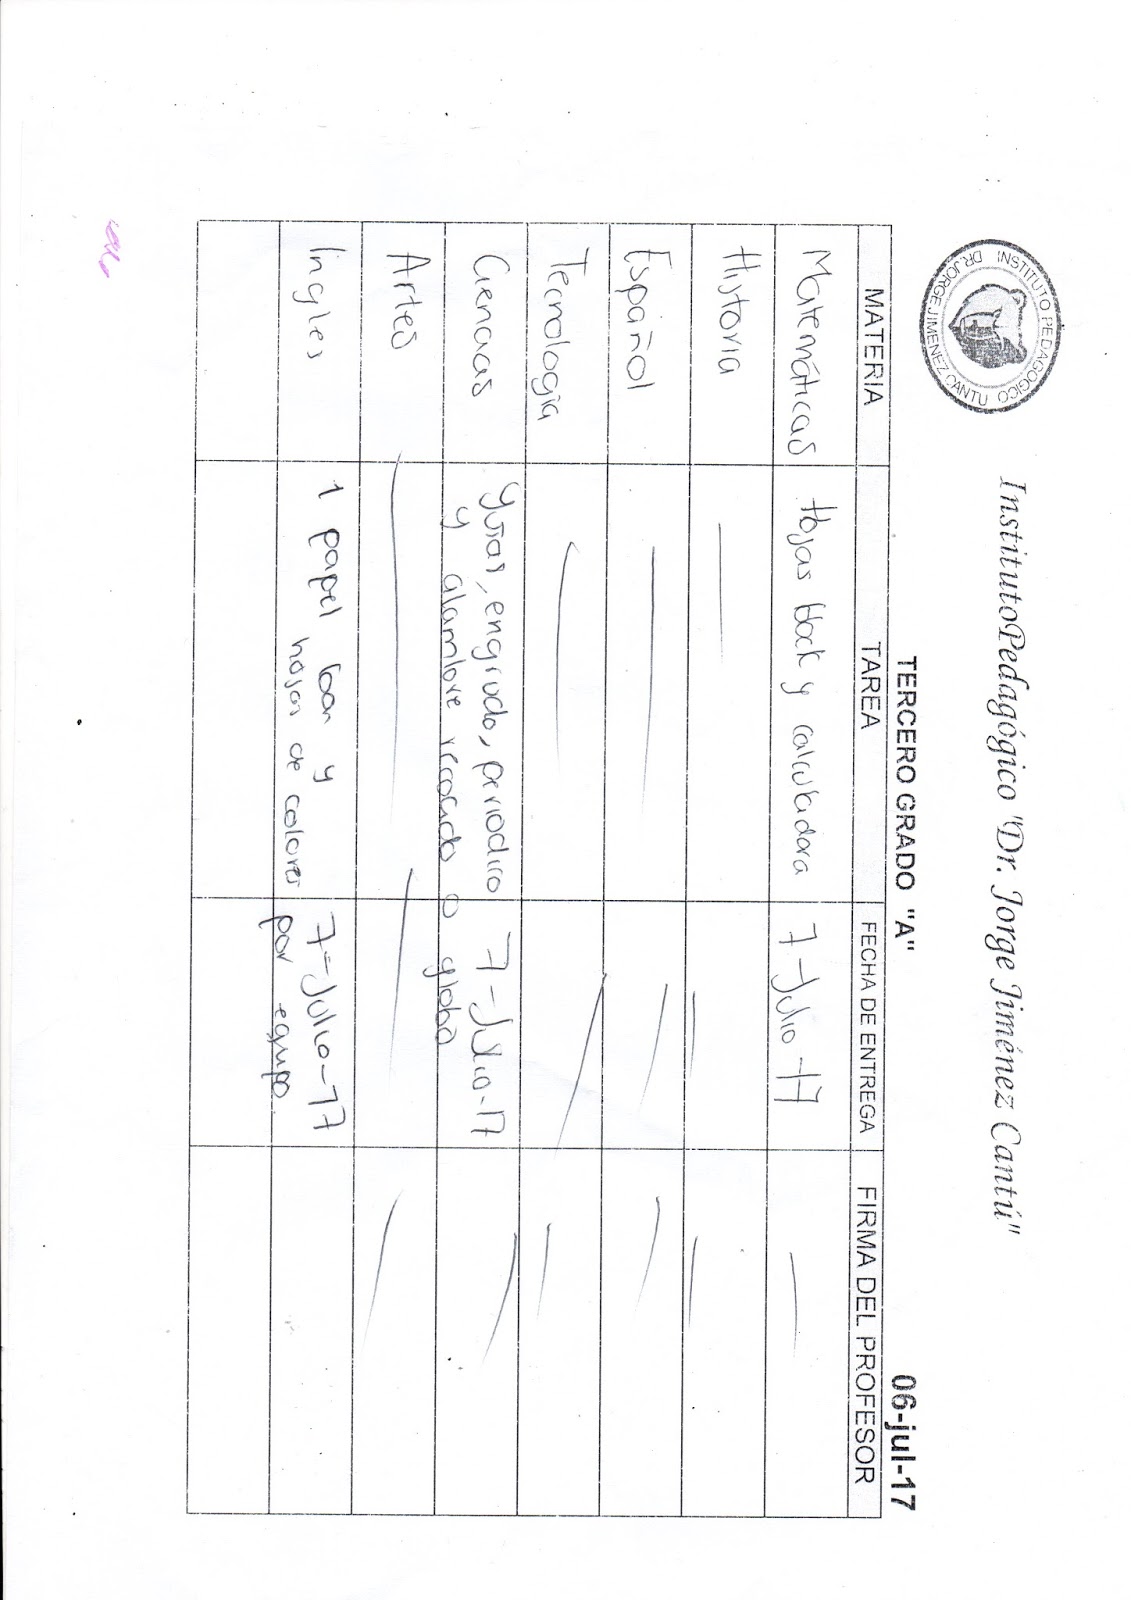 INSTITUTO PEDAGOGICO
DR. JORGE JIMENEZ CANTU
InstitutoPedagógico "Dr. Jorge Jiménez Cantú"
TERCERO GRADO "A"
06-jul-17
MATERIA TAREA FECHA DE ENTREGA FIRMA DEL PROFESOR
Matemáticas Hojas block y calculadora 7-Julio-17
Historia
Español
Tecnología
Ciencias engrudo, periodico 7-Julio-17
y alambre recocido o globo
Artes
Ingles 1 papel bon y 7-Julio-17
hojas de colores por equipo